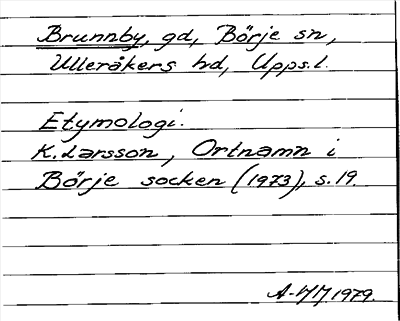 Brunnby, gd, Börje sn,
Ulleråkers hd, Upps.l.
Etymologi.
K. Larsson, Ortnamn i
Börje socken (1973), s. 19.
A-MM 1979.